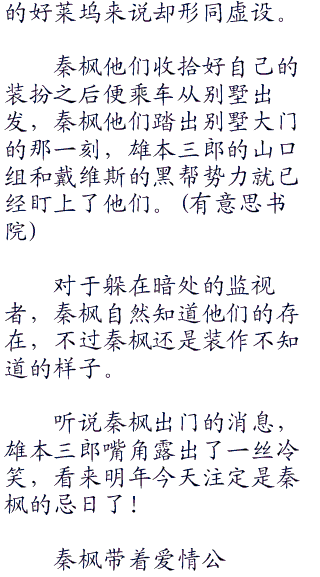 的好莱坞来说却形同虚设。
秦枫他们收拾好自己的
装扮之后便乘车从别墅出
发，秦枫他们踏出别墅大门
的那一刻，雄本三郎的山口
组和戴维斯的黑帮势力就已
经盯上了他们。(有意思书
院)
对于躲在暗处的监视
者，秦枫自然知道他们的存
在，不过秦枫还是装作不知
道的样子。
听说秦枫出门的消息，
雄本三郎嘴角露出了一丝冷
笑，看来明年今天注定是秦
枫的忌日了！
秦枫带着爱情公